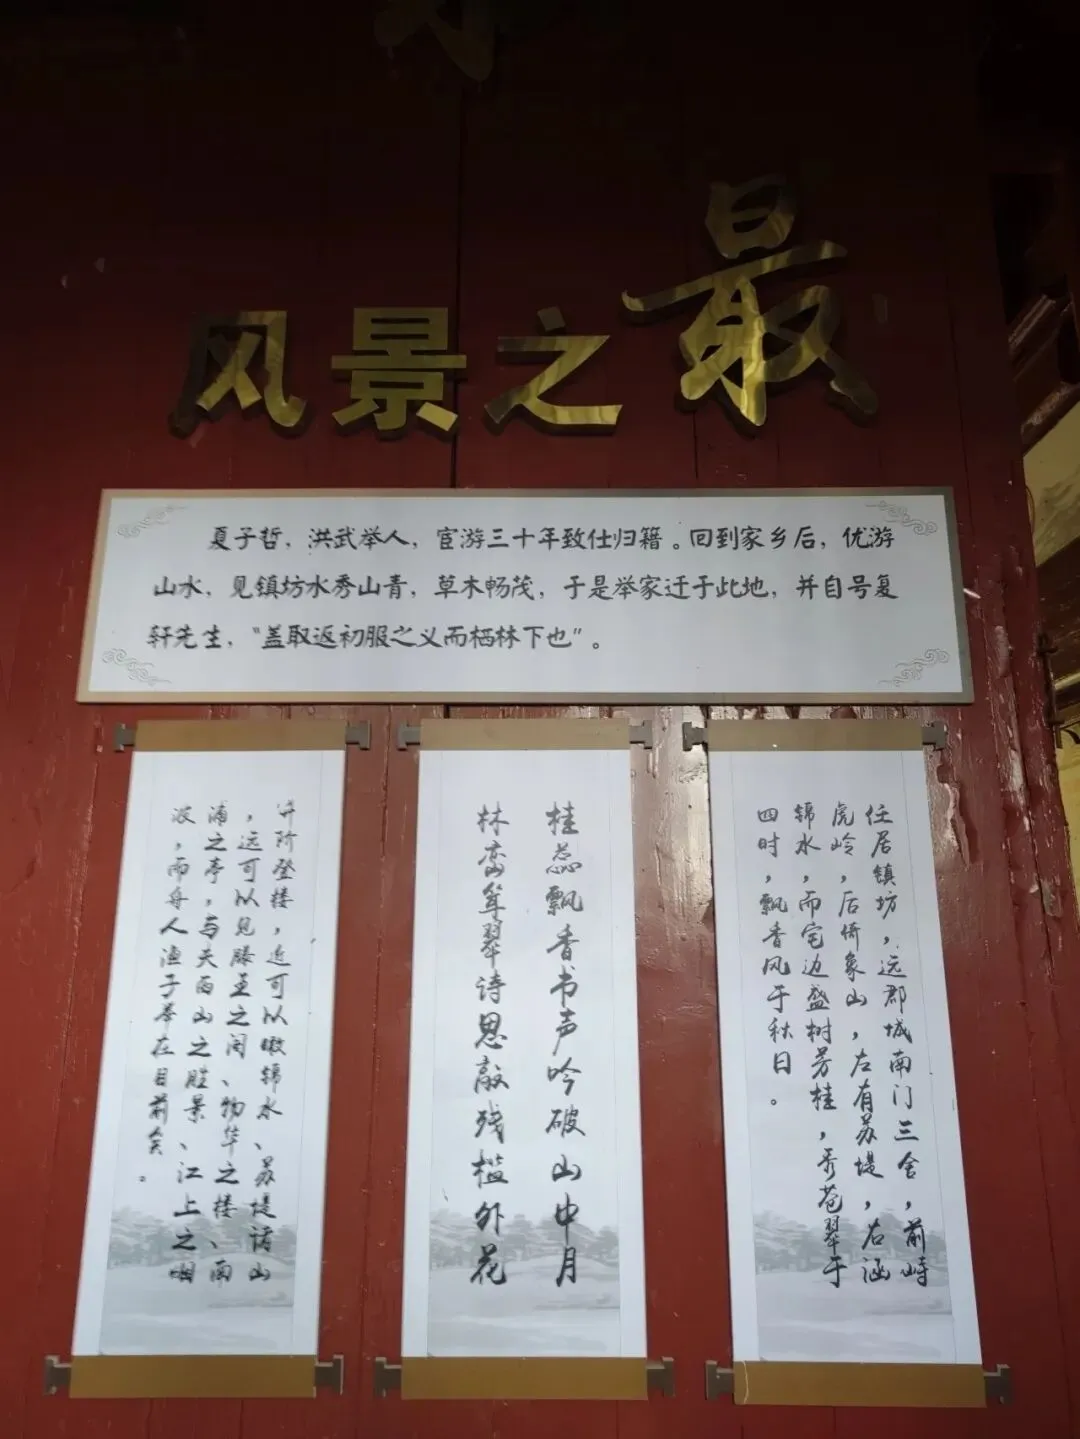 风景之最
夏子哲，洪武举人，宦游三十年致仕归籍。回到家乡后，优游
山水，见镇坊水秀山青，草木畅茂，于是举家迁于此地，并自号复
轩先生，“盖取返初服之义而栖林下也”。
任居镇坊，远郡城南门三舍，前峙
虎岭，后倚象山，左有苏堤，右涵
锦水，而宅边盛树芳桂，秀苍翠于
四时，飘香风于秋日。
桂蕊飘香书声吟破山中月
林峦耸翠诗思敲残槛外花
升阶登楼，近可以瞰锦水、苏堤诸山
，远可以见滕王之阁、物华之楼、南
浦之亭，与夫西山之胜景、江上之烟
波，而舟人渔子举在目前矣。